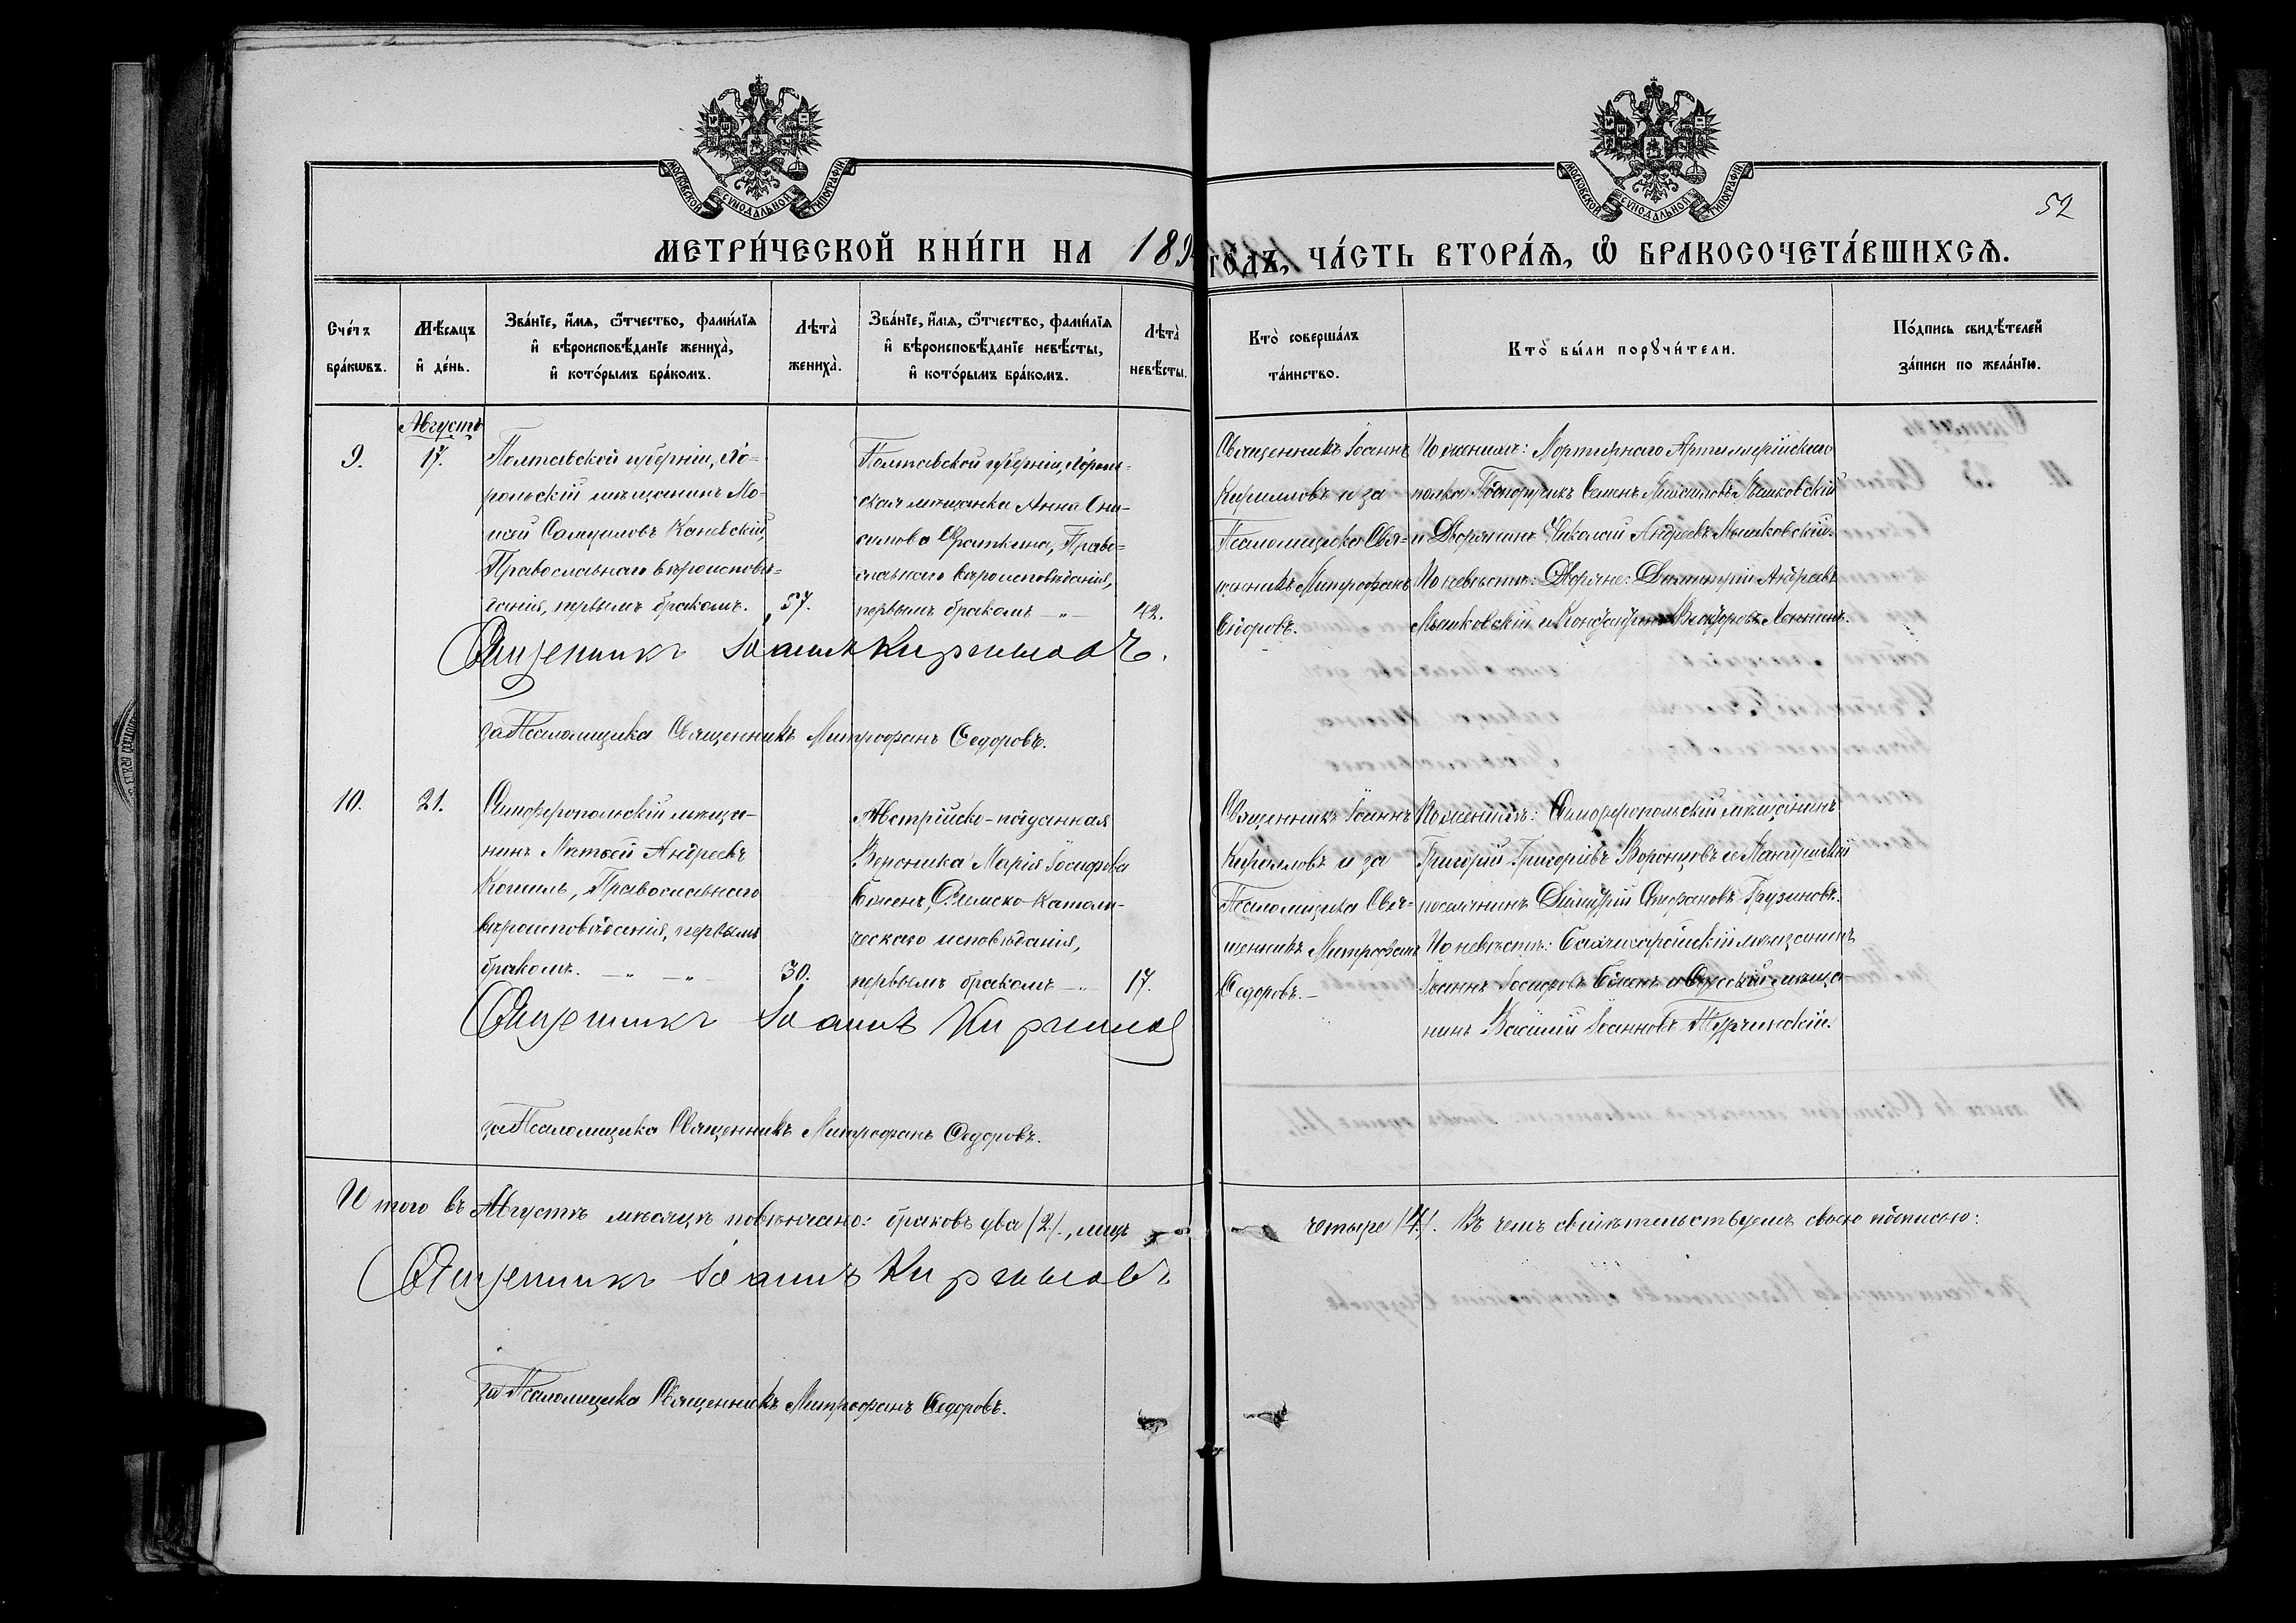 МОСКОВСКОЙ СѴНОДАЛЬНОЙ ТИПОГРАФІИ
МОСКОВСКОЙ СѴНОДАЛЬНОЙ ТИПОГРАФІИ
52
МЕТРИ́ЧЕСКОЙ КНИ́ГИ НА 189
ГО́ДЪ, ЧА́СТЬ ВТОРА́Ѧ, Ѡ҆ БРАКОСОЧЕТА́ВШИХСѦ.
Сче́тъ
бра́кѡвъ.
Мѣ́сѧцъ
и҆ де́нь.
Зва́нїе, и҆́мѧ, ѻ҆́тчество, фами́лїѧ
и҆ вѣроисповѣ́данїе жениха̀,
и҆ кото́рымъ бра́комъ.
Лѣта̀
жениха̀.
Зва́нїе, и҆́мѧ, ѻ҆́тчество, фами́лїѧ
и҆ вѣроисповѣ́данїе невѣ́сты,
и҆ кото́рымъ бра́комъ.
Лѣта̀
невѣ́сты.
Кто̀ соверша́лъ
та́инство.
Кто̀ бы́ли порꙋчи́тели.
По́дпись свидѣ́телей
за́писи по жела́нїю.
Августъ
9.
17.
Полтавской губерніи, Хо-
рольскій мѣщанинъ Мо-
исей Самуиловъ Каневскій,
Православнаго вѣроисповѣ-
данія, первымъ бракомъ.
57.
Полтавской губерніи,
ская мѣщанка Анна Они-
симова Фраткина, Право-
славнаго вѣроисповѣданія,
первымъ бракомъ —„—
42.
Священникъ Іоаннъ
Кирилловъ и за
Псаломщика Свя-
щенникъ Митрофанъ
Ѳедоровъ.
По женихѣ: Мортирнаго Артиллерійскаго
полка Подпоручикъ Семенъ Мышковскій
и Дворянинъ Николай Андреевъ Мышковскій.
По невѣстѣ: Дворяне: Димитрій Андреевъ
Мышковскій и
Священникъ Іоаннъ Кирилловъ.
за Псаломщика Священникъ Митрофанъ Ѳедоровъ.
10.
21.
Симферопольскій мѣща-
нинъ Матѳей Андреевъ
Копиль, Православнаго
вѣроисповѣданія, первымъ
бракомъ. —„— —„—
30.
Австрійско-подданная
Вероника Марія Іосифова
Бженъ, Римско-Католи-
ческаго исповѣданія,
первымъ бракомъ —„—
17.
Священникъ Іоаннъ
Кирилловъ и за
Псаломщика Свя-
щенникъ Митрофанъ
Ѳедоровъ.—
По женихѣ: Симферопольскій мѣщанинъ
Григорій Григоріевъ Воронцовъ и
поселянинъ Димитрій Стефановъ Грузиновъ.
По невѣстѣ: Бахчисарайскій мѣщанинъ
Іоаннъ Іосифовъ Бженъ и мѣща-
нинъ Василій Іоанновъ
Священникъ Іоаннъ Кириллов
за Псаломщика Священникъ Митрофанъ Ѳедоровъ.
Итого въ Августѣ мѣсяцѣ повѣнчано: браковъ два (2)., лицъ четыре (4). Въ чемъ свидѣтельствуемъ своею подписью:
Священникъ Іоаннъ Кирилловъ
за Псаломщика Священникъ Митрофанъ Ѳедоровъ.